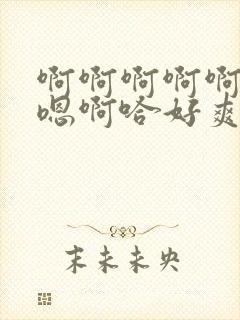 啊啊啊啊啊
嗯啊哈好爽
末未未央